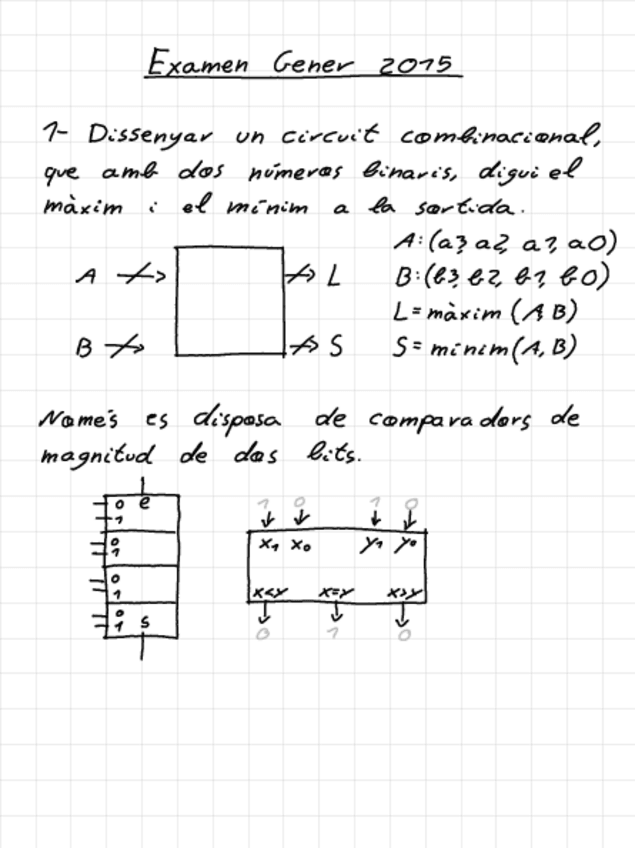 Examen Gener 2015
1- Dissenyar un circuit combinacional,
que amb dos números binaris, digui el
màxim i el mínim a la sortida.
A:(a3, a2, a1, a0)
A L B:(b3, b2, b1, b0)
L = màxim (A, B)
B S S = mínim (A, B)
Només es disposa de comparadors de
magnitud de dos bits.
0 e
1
0
1
0
1
0 s
1
1 0 1 0
x1 x0 y1 y0
x<y x=y x>y
0 1 0